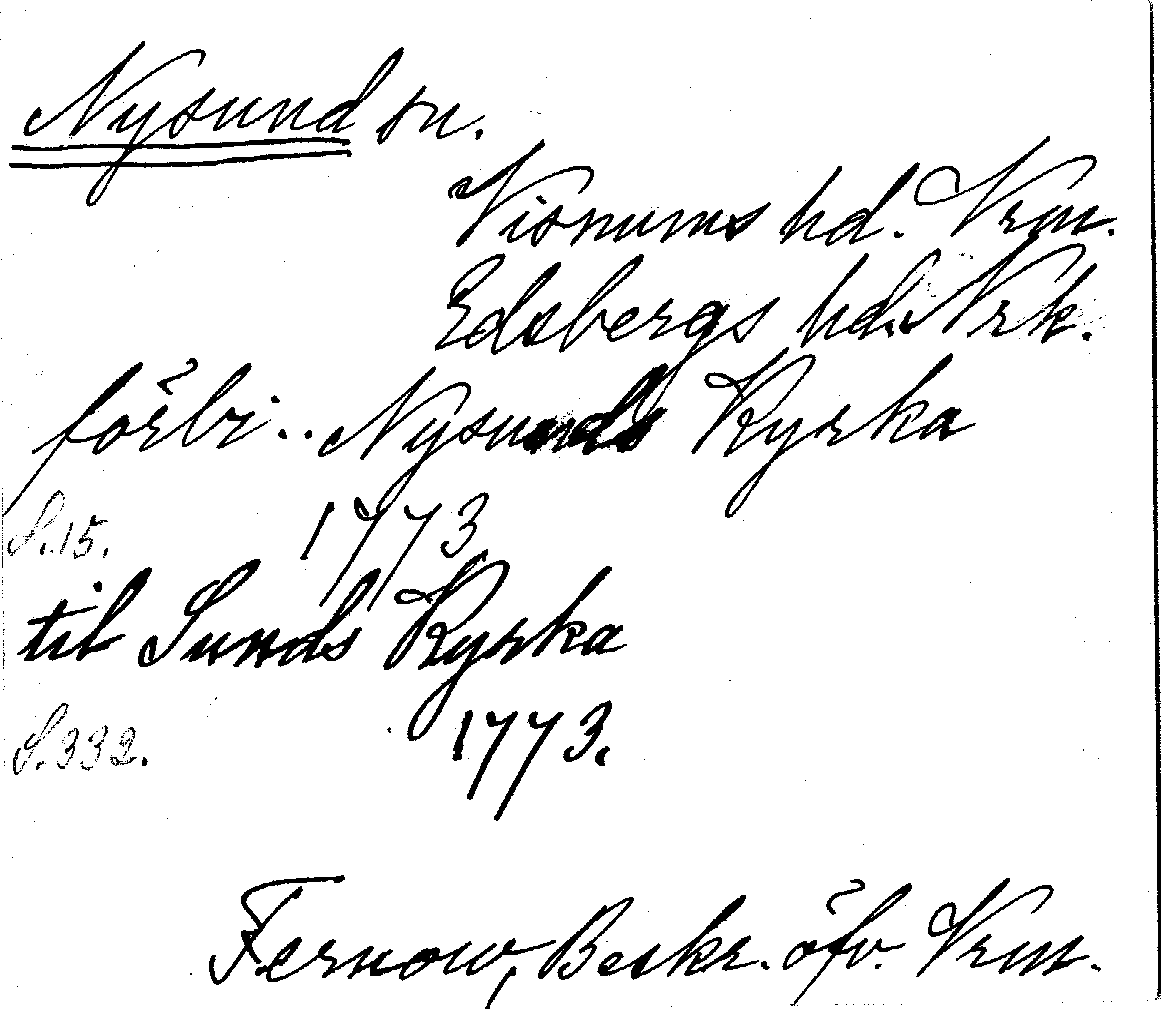 Nysund sn.
Visnums hd. Vrm.
Edsbergs hd. Nrk.
förbi .. Nysunds Kyrka
S. 15. 1773
til Sunds Kyrka
S. 332. 1773.
Fernow, Beskr. öfv. Vrm.